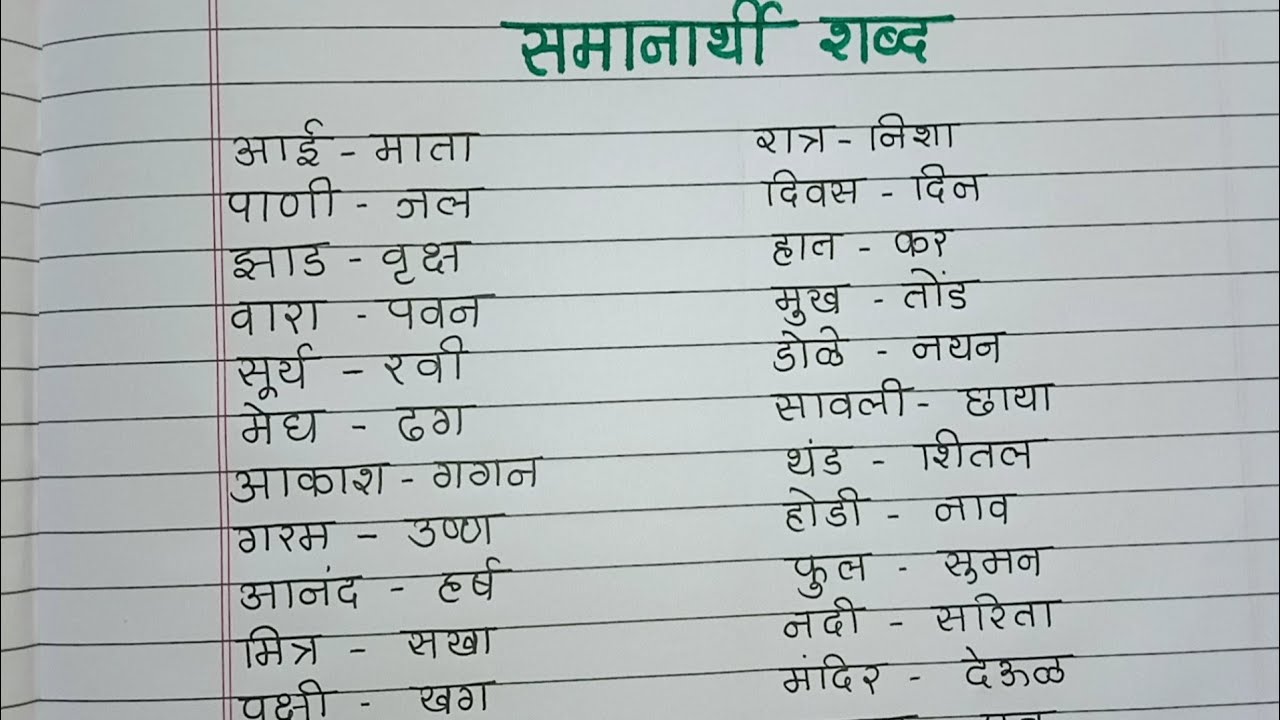 समानार्थी शब्द
आई - माता
पाणी - जल
झाड - वृक्ष
वारा - पवन
सूर्य - रवी
मेघ - ढग
आकाश - गगन
गरम - उष्ण
आनंद - हर्ष
मित्र - सखा
पक्षी - खग
रात्र - निशा
दिवस - दिन
हात - कर
मुख - तोंड
डोळे - नयन
सावली - छाया
थंड - शितल
होडी - नाव
फुल - सुमन
नदी - सरिता
मंदिर - देऊळ